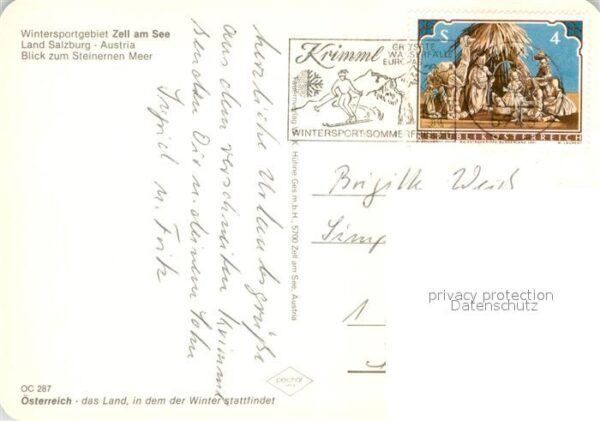 Wintersportgebiet Zell am See
Land Salzburg - Austria
Blick zum Steinernen Meer
herzliche Urlaubsgrüße
aus dem verschneiten Krimml
senden Dir u. deinem Sohn
Ingrid u. Fritz
OC 287
Österreich - das Land, in dem der Winter stattfindet
K. Hühne Ges.m.b.H., 5700 Zell am See, Austria
Krimml
GRÖSSTE
WASSERFÄLLE
EUROPAS
WINTERSPORT-SOMMERFR
S 4
REPUBLIK ÖSTERREICH
Brigitte
privacy protection
Datenschutz